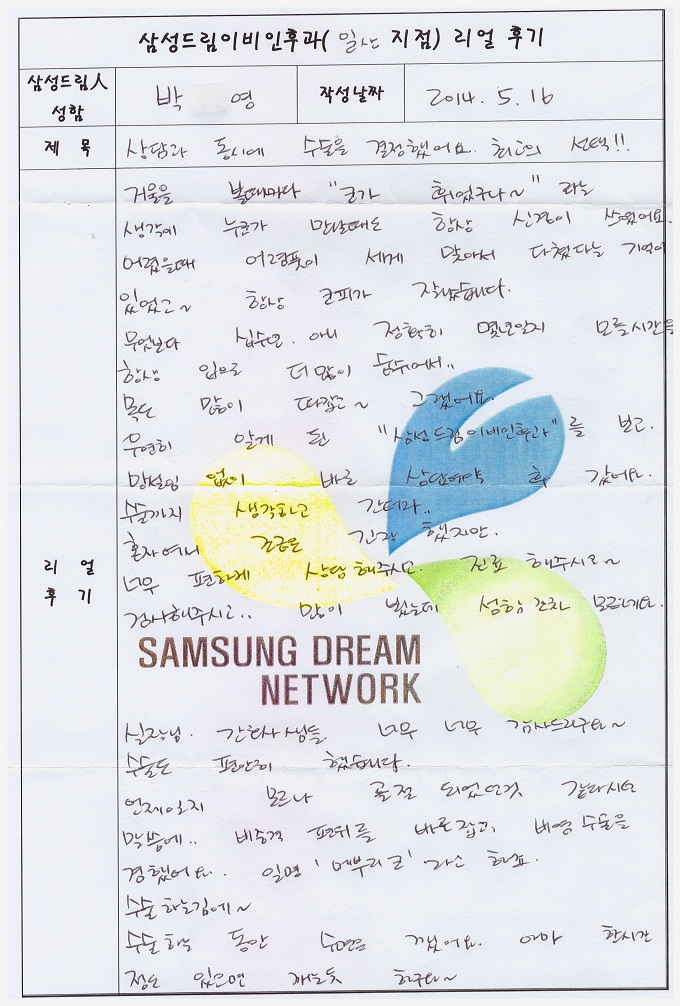 삼성드림이비인후과( 일산 지점) 리얼 후기
삼성드림人 성함
박 영
작성날짜
2014. 5. 16
제 목
상담과 동시에 수술을 결정했어요. 최고의 선택!!
리 얼 후 기
거울을 볼때마다 "코가 휘었구나~" 라는
생각에 누군가 만날때도 항상 신경이 쓰였어요.
어렸을때 어렴풋이 세게 맞아서 다쳤다는 기억이
있었고~ 항상 코피가 잘났습니다.
무엇보다 십수년. 아니 정확히 몇년인지 모를시간을
항상 입으로 더많이 숨쉬어서..
목도 많이 따갑고~ 그랬어요.
우연히 알게 된 "삼성드림이비인후과"를 보고.
망설임 없이 바로 상담예약 후 갔어요.
수술까지 생각하고 간터라..
혼자여서 조금은 긴장 했지만.
너무 편하게 상담해주시고. 진료 해주시고~
검사해주시고.. 많이 뵜는데 성함조차 모르네요.
SAMSUNG DREAM
NETWORK
실장님. 간호사생님들 너무 너무 감사드리구요~
수술도 편안히 했습니다.
언제인지 모르나 골절 되었던것 같다시던
말씀에.. 비중격 편위를 바로잡고, 비염수술을
겸했어요. 일면 '메부리코' 라고 하죠.
수술하는김에~
수술 하는 동안 수면을 했어요. 아마 한시간
정도 있으면 깨는듯 하구요~